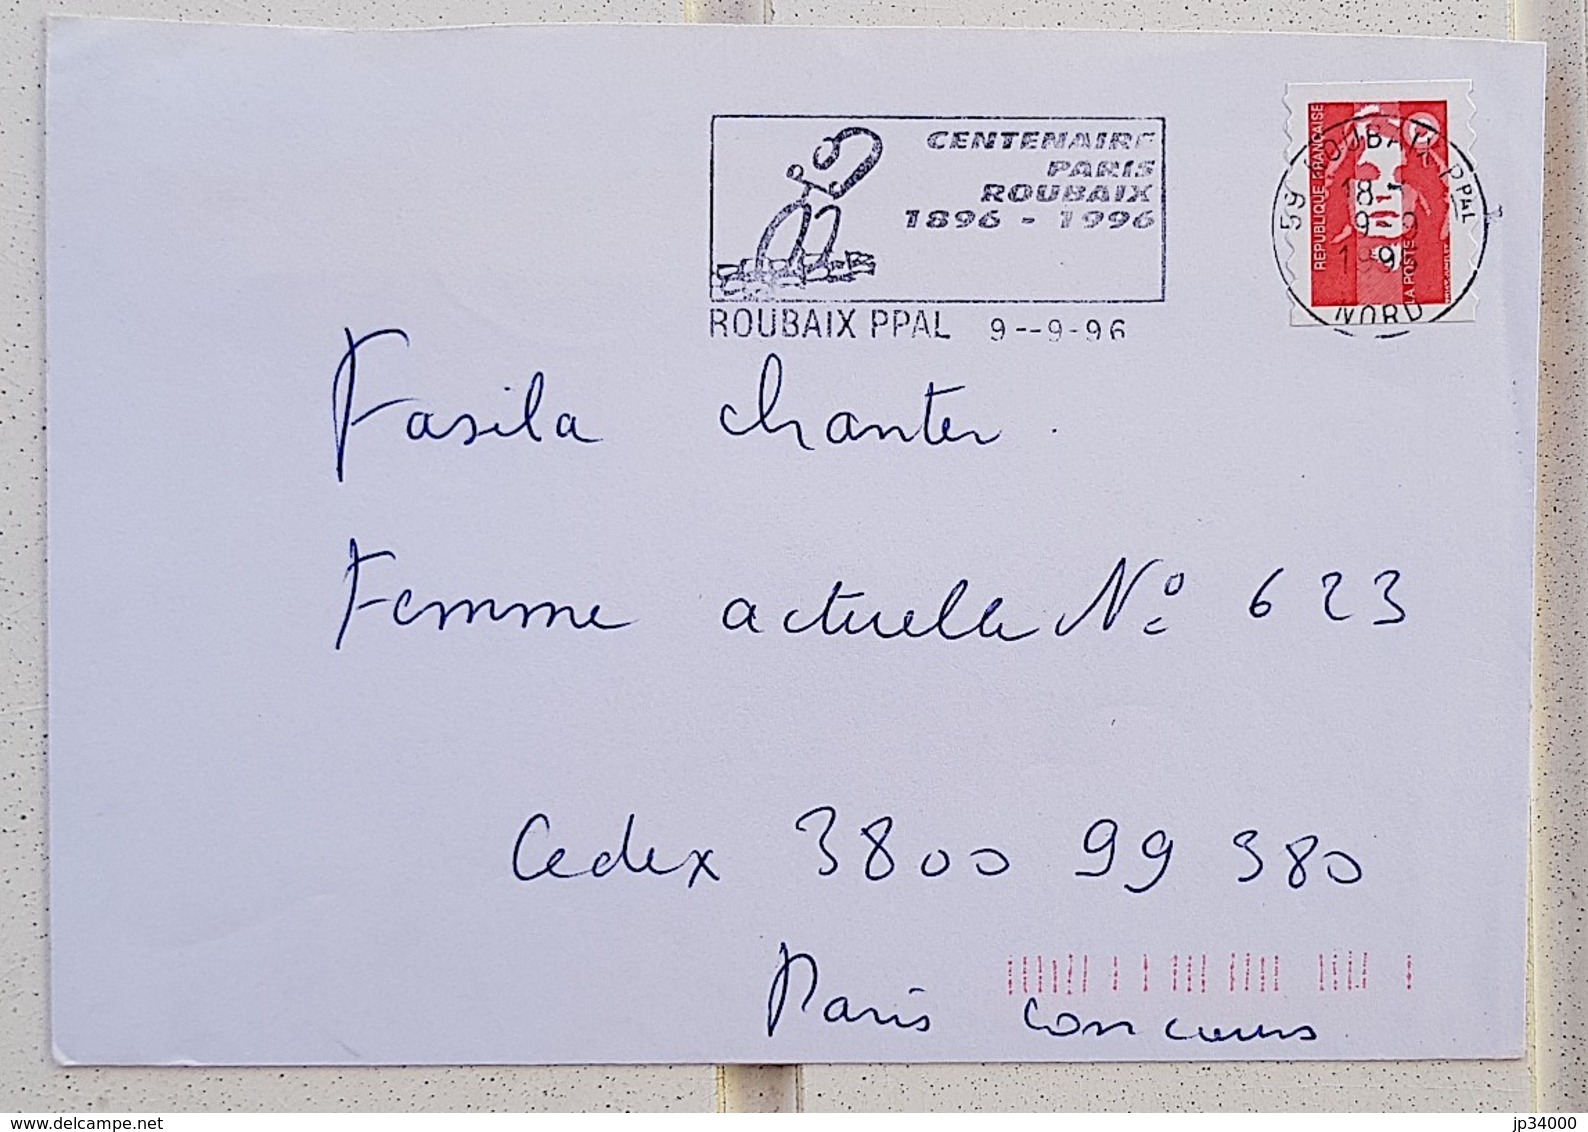 CENTENAIRE
PARIS
ROUBAIX
1896 - 1996
ROUBAIX PPAL 9--9-96
REPUBLIQUE FRANÇAISE
LA POSTE
59 ROUBAIX PPAL
18
9-9
1996
NORD
Fasila chanter
Femme actuelle N° 623
Cedex 3800 99 380
Paris concours
jp34000